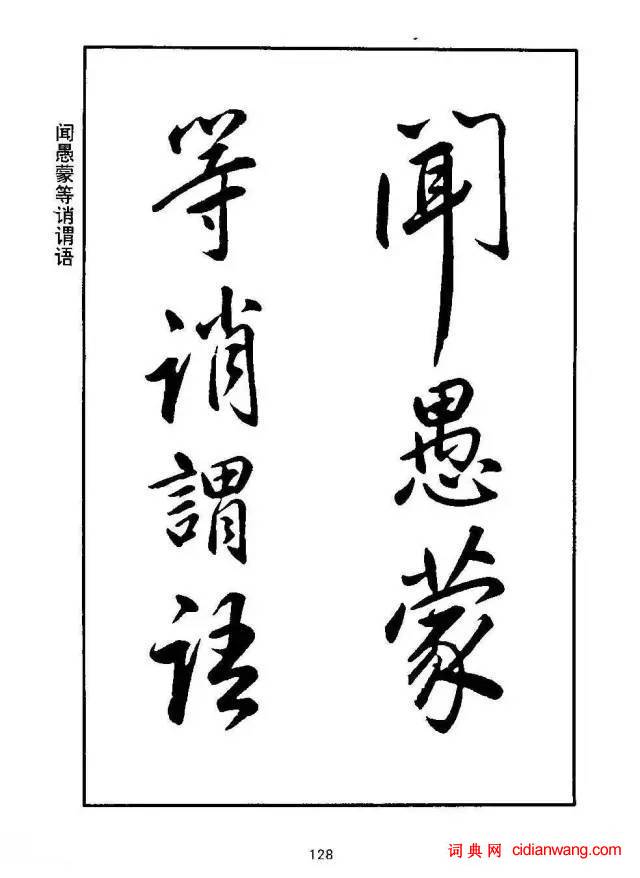 聞愚蒙
等誚謂語
闻愚蒙等诮谓语
128
词典网 cidianwang.com